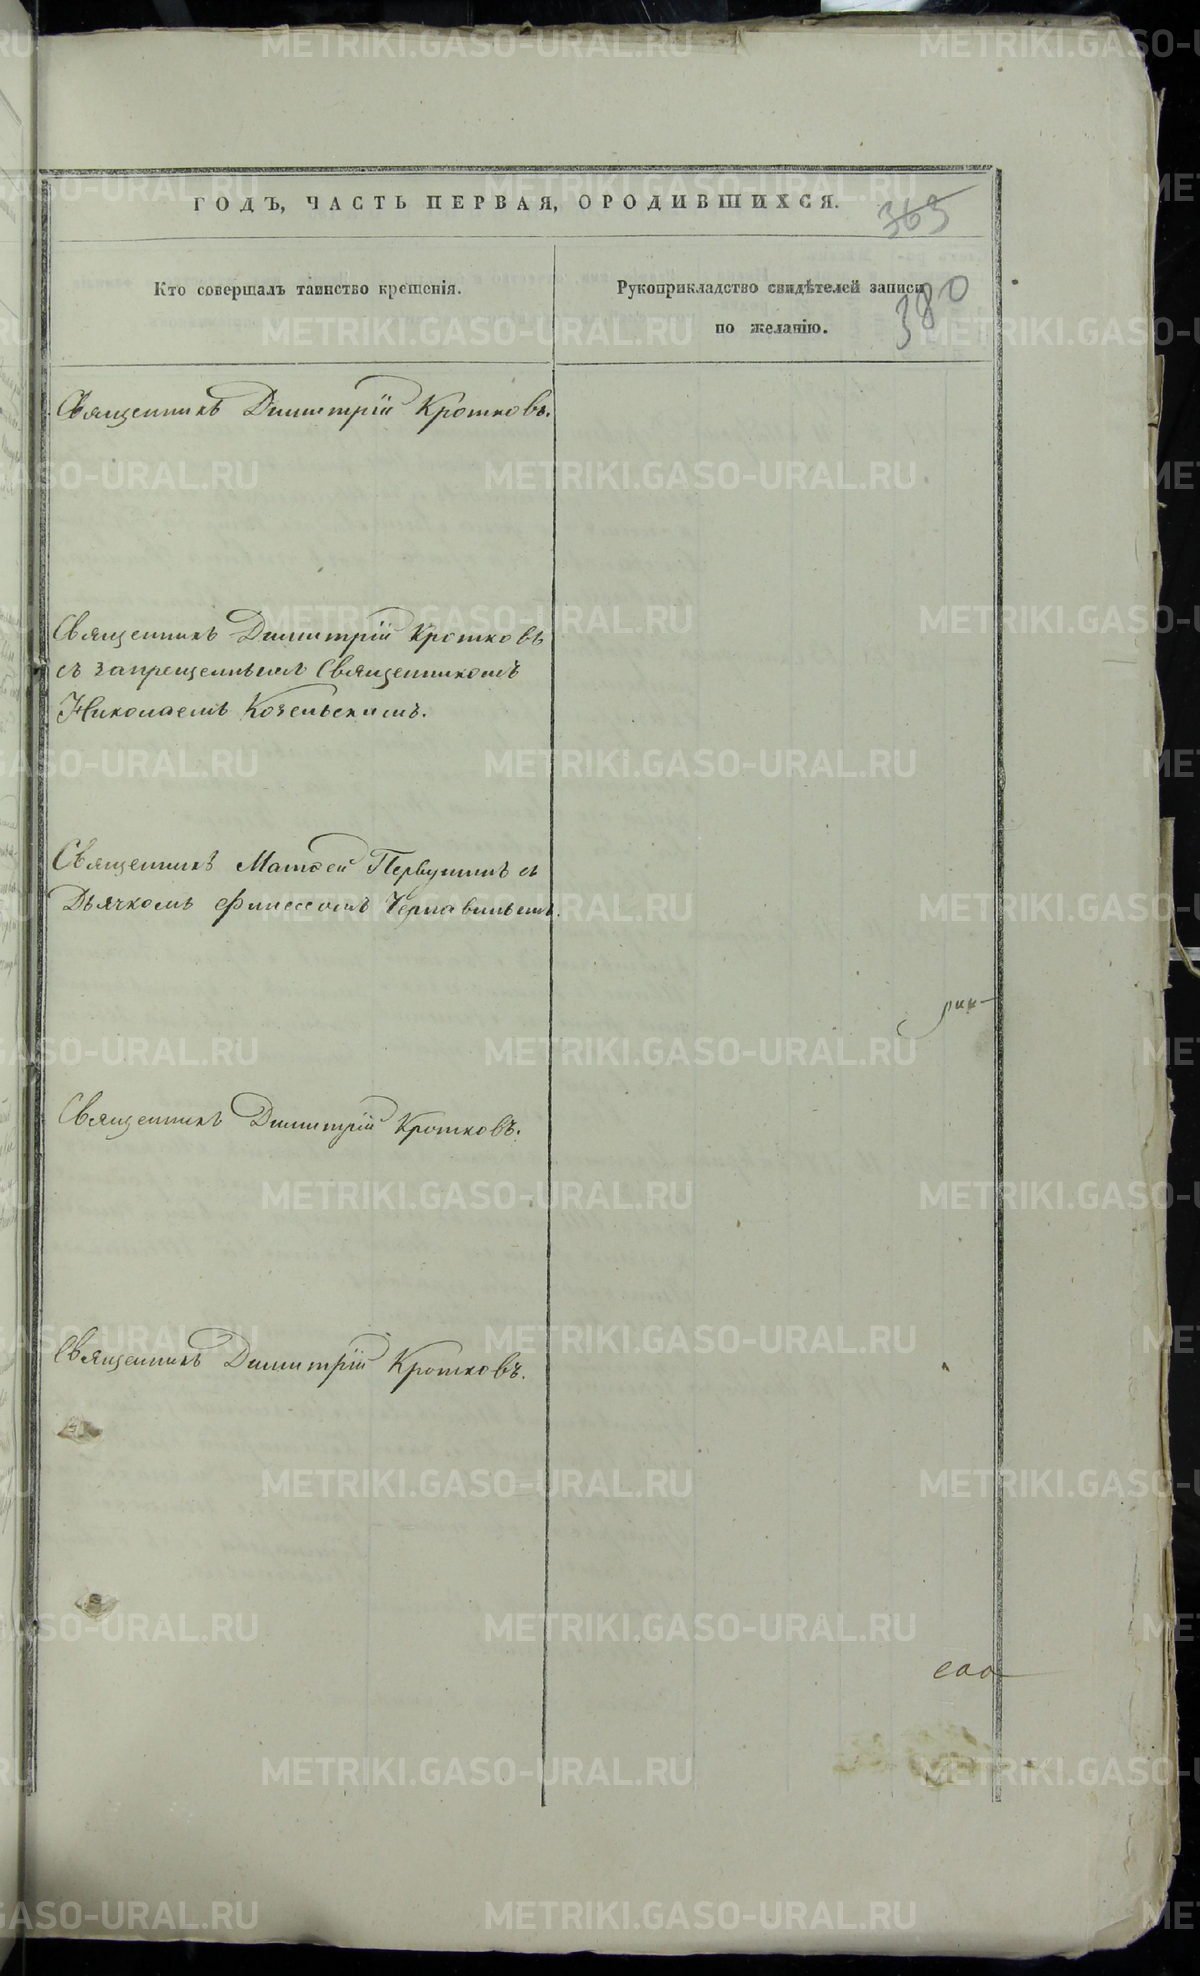 ГОДЪ, ЧАСТЬ ПЕРВАЯ, ОРОДИВШИХСЯ.
369
380
Кто совершалъ таинство крещенія.
Рукоприкладство свидѣтелей записи
по желанію.
Священникъ Димитрій Кротковъ.
Священникъ Димитрій Кротковъ
съ запрещеннымъ Священникомъ
Николаемъ Козельскимъ.
Священникъ Матѳей Первушинъ съ
Дьячкомъ Финеесомъ Чернавинымъ.
Священникъ Димитрій Кротковъ.
Священникъ Димитрій Кротковъ.
METRIKI.GASO-URAL.RU